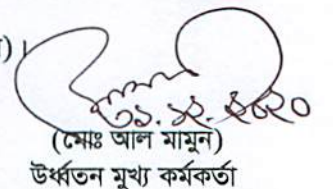 )।
৩১.১২.২০২০
(মোঃ আল মামুন)
উর্ধ্বতন মুখ্য কর্মকর্তা